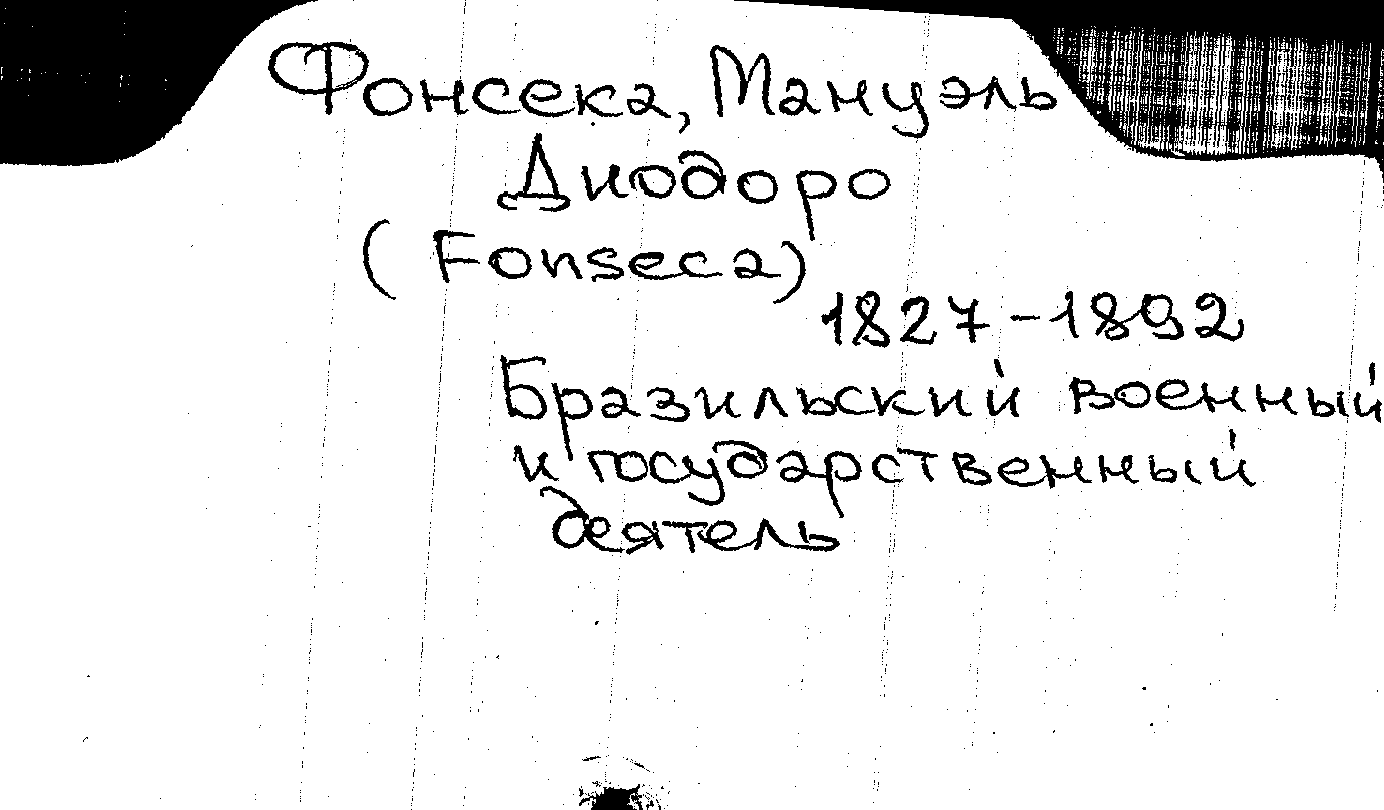 Фонсека, Мануэль
Диодоро
(Fonseca)
1827-1892
Бразильский военный
и государственный
деятель